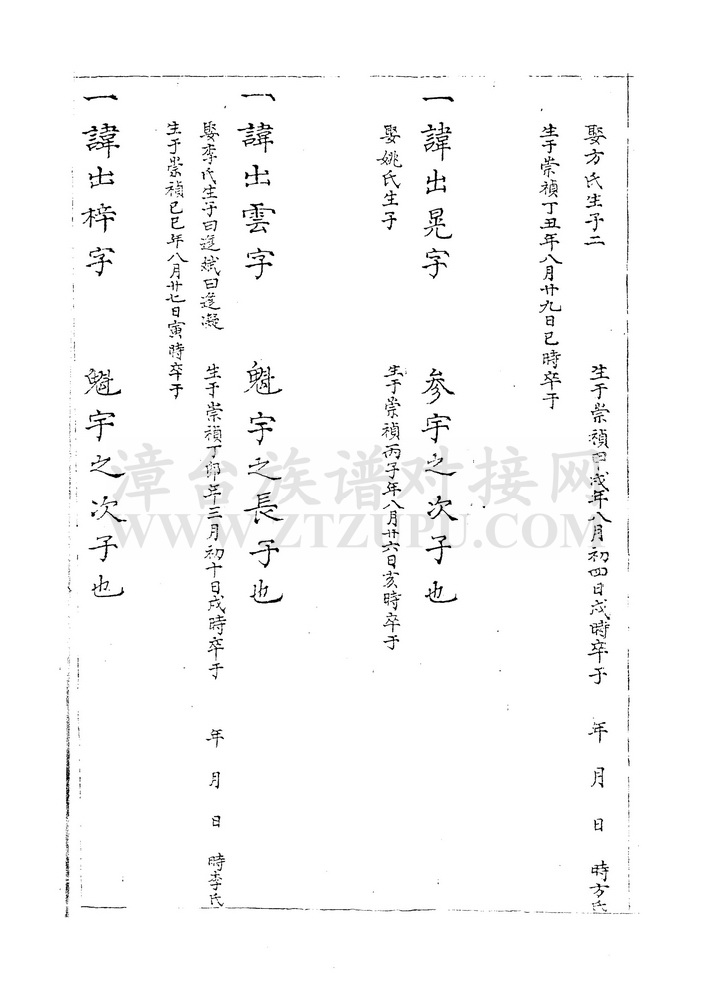 娶方氏生子二　生于崇禎甲戌年八月初四日戌時卒于　年　月　日　時方氏
生于崇禎丁丑年八月廿九日巳時卒于
一諱出晃字　參宇之次子也
娶姚氏生子　生于崇禎丙子年八月廿六日亥時卒于
一諱出雲字　魁宇之長子也
娶李氏生子曰逢斌曰逢凝　生于崇禎丁卯年三月初十日戌時卒于　年　月　日　時李氏
生于崇禎己巳年八月廿七日寅時卒于
一諱出梓字　魁宇之次子也
漳台族谱对接网
WWW.ZTZUPU.COM